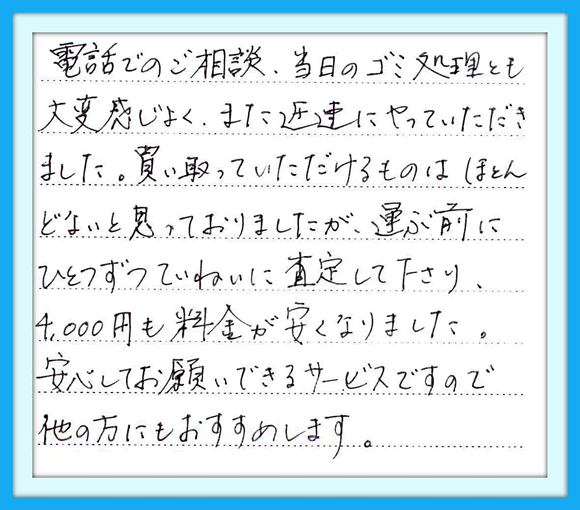 電話でのご相談、当日のゴミ処理とも
大変感じよく、また迅速にやっていただき
ました。買い取っていただけるものはほとん
どないと思っておりましたが、運ぶ前に
ひとつずつていねいに査定して下さり、
4,000円も料金が安くなりました。
安心してお願いできるサービスですので
他の方にもおすすめします。